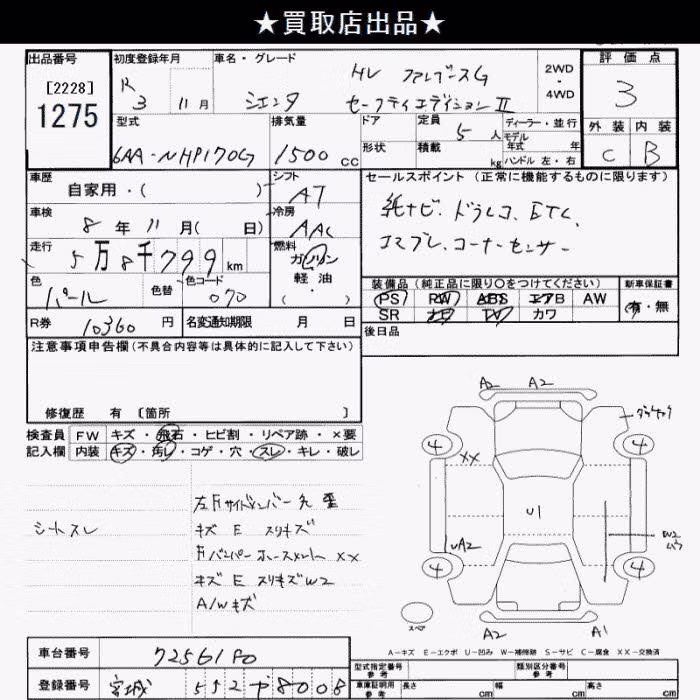 ★買取店出品★
出品番号 初度登録年月 車名・グレード 評価点
[2228] R 3 11月 シエンタ HV ファンベースG 2WD・4WD 3
1275 セーフティエディションII
型式 排気量 ドア 定員 5人 ディーラー・並行 外装 内装
6AA-NHP170G 1500cc 形状 積載 kg モデル年式 年 C B
ハンドル 左・右
車歴 シフト セールスポイント(正常に機能するものに限ります)
自家用・( ) AT
車検 冷房 純ナビ、ドラレコ、ETC、
8年11月( 日) AAC エマブレ、コーナーセンサー
走行 燃料
5万8千799km ガソリン
軽油
・( )
色 色替 色コード 装備品(純正品に限り〇をつけてください) 新車保証書
パール 070 PS PW ABS エアB AW 有・無
R券 10360円 名変通知期限 月 日 SR ナビ TV カワ
後日品
注意事項申告欄(不具合内容等は具体的に記入して下さい)
修復歴 有 〔箇所 〕
検査員 FW キズ・飛石・ヒビ割・リペア跡・×要
記入欄 内装 キズ・汚レ・コゲ・穴・スレ・キレ・破レ
シートスレ
キズ E スリキズ
××
キズ E スリキズ W2
A/Wキズ
A2 A2
4 4
××
U1
UA2 W2
4 4
スペア
A2 A1
A-キズ E-エクボ U-凹み W-補修跡 S-サビ C-腐食 ××-交換済
車台番号 7256180 型式指定番号 参考 類別区分番号 参考
登録番号 宮城 552 8008 車庫証明用 参考 長さ cm 幅 cm 高さ cm